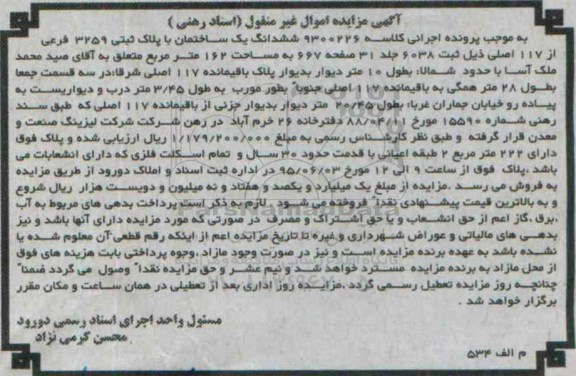 آگهی مزایده اموال غیر منقول (اسناد رهنی )
به موجب پرونده اجرائی کلاسه ۹۳۰۰۲۲۶ ششدانگ یک ساختمان با پلاک ثبتی ۳۲۵۹ فرعی
از ۱۱۷ اصلی ذیل ثبت ۶۰۳۸ جلد ۳۱ صفحه ۶۶۷ به مساحت ۱۶۲ متر مربع متعلق به آقای صید محمد
ملک آسا با حدود شمالا: بطول ۱۰ متر دیوار بدیوار پلاک باقیمانده ۱۱۷ اصلی شرقا: در سه قسمت جمعا
بطول ۲۸ متر همگی به باقیمانده ۱۱۷ اصلی جنوبا" بطور مورب به طول ۳/۴۵ متر درب و دیواریست به
پیاده رو خیابان جماران غربا: بطول ۲۰/۴۵ متر دیوار بدیوار جزئی از باقیمانده ۱۱۷ اصلی که طبق سند
رهنی شماره ۱۵۵۹۰ مورخ ۸۸/۰۴/۱۱ دفترخانه ۲۶ خرم آباد در رهن شرکت شرکت لیزینگ صنعت و
معدن قرار گرفته و طبق نظر کارشناس رسمی به مبلغ ۱/۱۷۹/۲۰۰/۰۰۰ ریال ارزیابی شده و پلاک فوق
دارای ۲۲۲ متر مربع ۲ طبقه اعیانی با قدمت حدود ۳۰ سال و تمام اسکلت فلزی که دارای انشعابات می
باشد ،پلاک فوق از ساعت ۹ الی ۱۲ مورخ ۹۵/۰۶/۰۳ در اداره ثبت اسناد و املاک دورود از طریق مزایده
به فروش می رسد .مزایده از مبلغ یک میلیارد و یکصد و هفتاد و نه میلیون و دویست هزار ریال شروع
و به بالاترین قیمت پیشنهادی نقدا" فروخته می شود . لازم به ذکر است پرداخت بدهی های مربوط به آب
،برق ،گاز اعم از حق انشعاب و یا حق اشتراک و مصرف در صورتی که مورد مزایده دارای آنها باشد و نیز
بدهی های مالیاتی و عوراض شهرداری و غیره تا تاریخ مزایده اعم از اینکه رقم قطعی آن معلوم شده یا
نشده باشد به عهده برنده مزایده است و نیز در صورت وجود مازاد ،وجوه پرداختی بابت هزینه های فوق
از محل مازاد به برنده مزایده مسترد خواهد شد و نیم عشر و حق مزایده نقدا" وصول می گردد ضمنا"
چنانچه روز مزایده تعطیل رسمی گردد ،مزایده روز اداری بعد از تعطیلی در همان ساعت و مکان مقرر
برگزار خواهد شد .
مسئول واحد اجرای اسناد رسمی دورود
محسن کرمی نژاد
م الف ۵۳۴